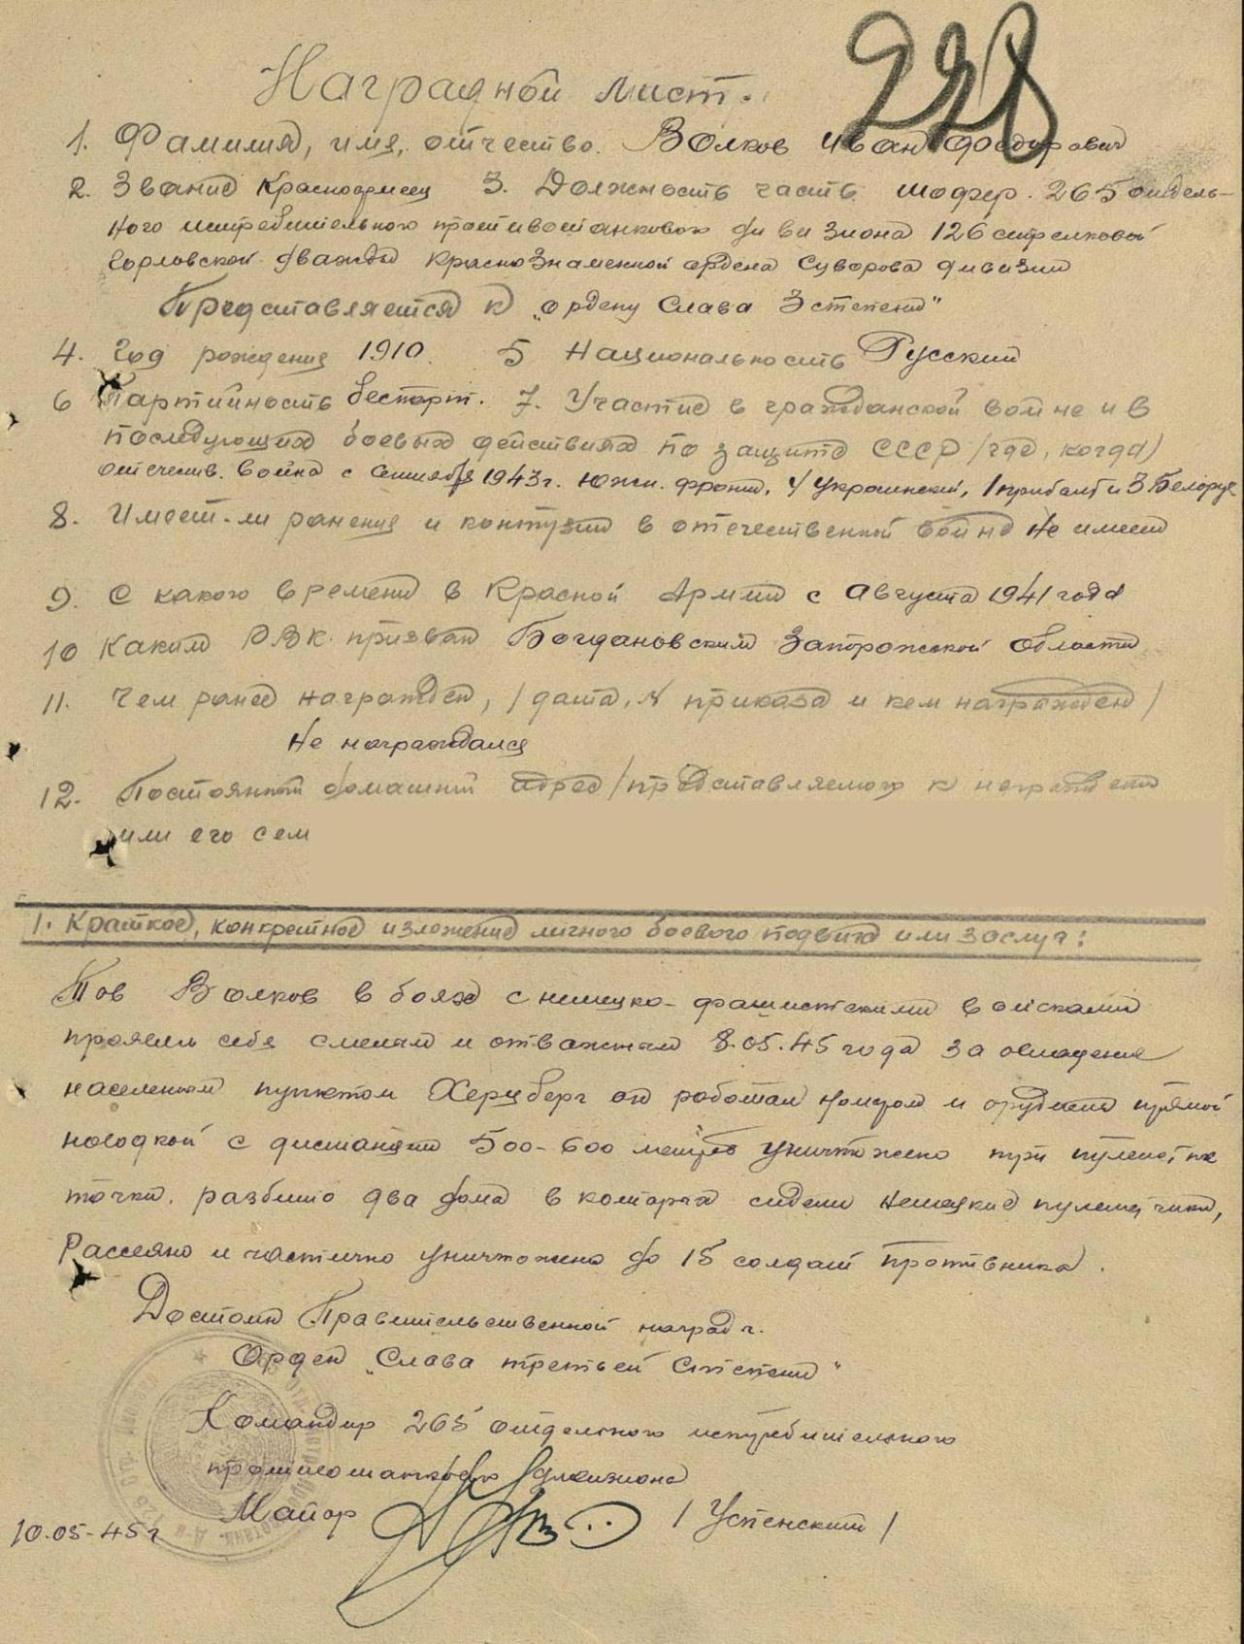 228
Наградной лист.
1. Фамилия, имя, отчество. Волков Иван Федорович
2. Звание Красноармеец 3. Должность часть шофер. 265 отдель-
ного истребительного противотанкового дивизиона 126 стрелковой
Горловской дважды Краснознаменной ордена Суворова дивизии
Представляется к „ордену Слава 3 степени"
4. Год рождения 1910. 5 Национальность Русский
6 Партийность беспарт. 7. Участие в гражданской войне и в
последующих боевых действиях по защите СССР /где, когда/
отечеств. война с сентября 1943 г. Южн. фронт, 4 Украинский, 1 прибалт и 3 Белорус
8. Имеет-ли ранения и контузии в отечественной войне Не имеет
9. С какого времени в Красной Армии с Августа 1941 года
10 Каким РВК призван Богдановским Запорожской области
11. Чем ранее награжден, /дата, № приказа и кем награжден/
Не награждался
12. Постоянный домашний адрес /представляемого к награждению
или его сем
1. Краткое, конкретное изложение личного боевого подвига или заслуг:
Тов Волков в боях с немецко-фашистскими войсками
проявил себя смелым и отважным 8.05.45 года за овладение
населенным пунктом Херцберг он работал номером и орудием прямой
наводкой с дистанции 500-600 метров уничтожено три пулеметные
точки. разбито два дома в которых сидели немецкие пулеметчики,
Рассеяно и частично уничтожено до 15 солдат противника.
Достоин Правительственной награды.
Орден „Слава третьей степени"
Командир 265 отдельного истребительного
противотанкового дивизиона
Майор / Успенский /
10.05-45 г